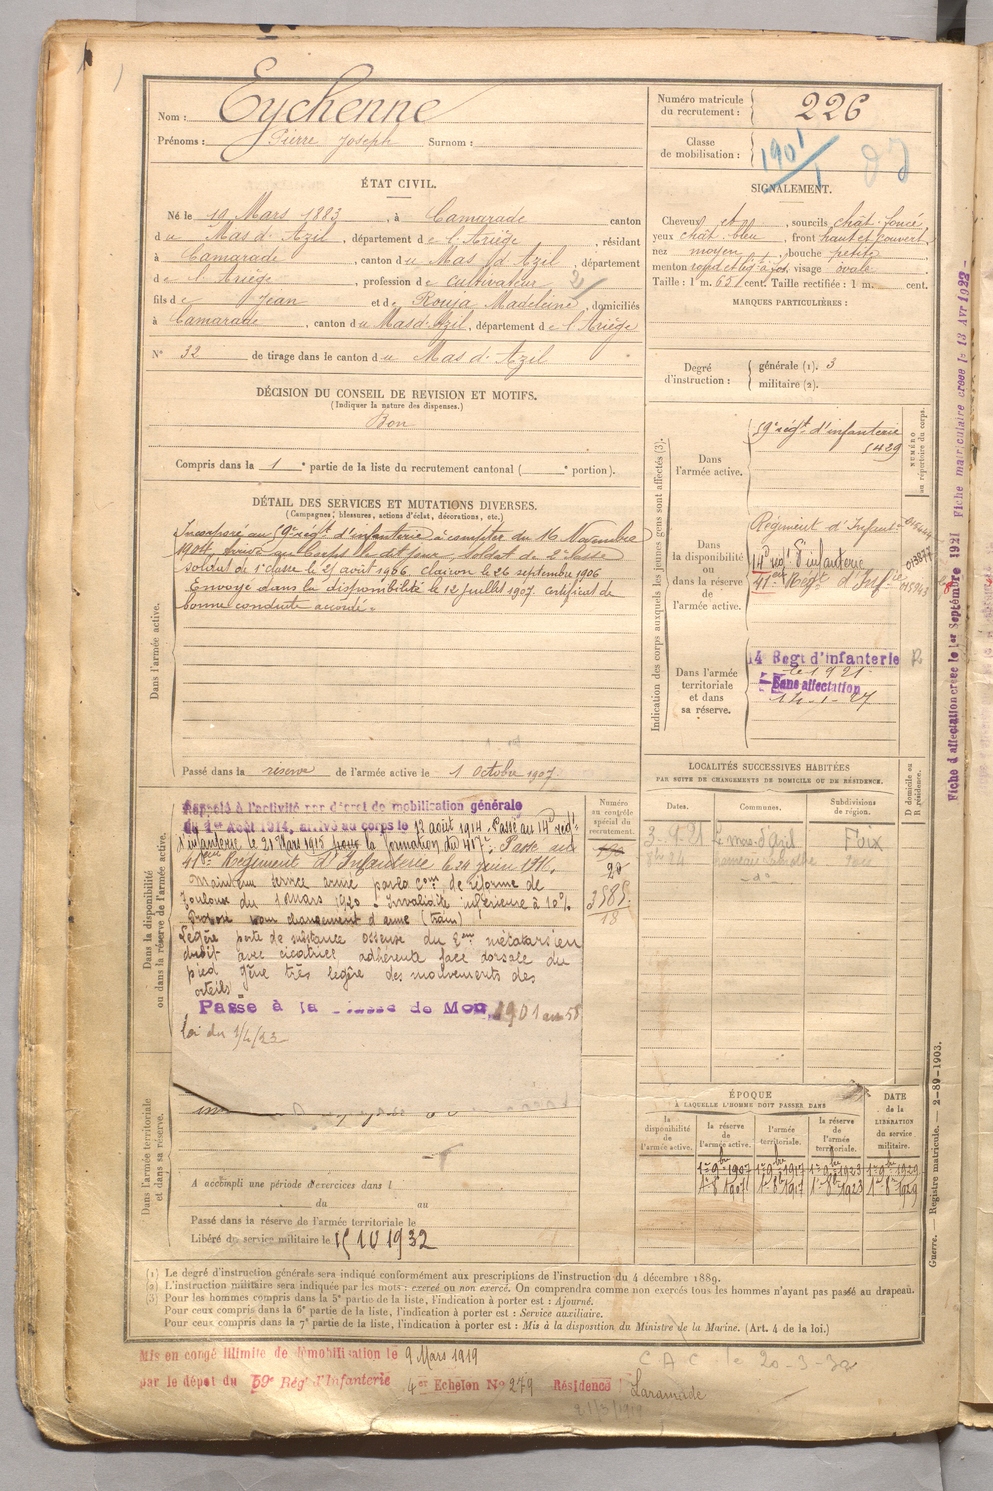 Nom : Eychenne
Prénoms : Pierre Joseph Surnom :
Numéro matricule du recrutement : 226
Classe de mobilisation : 1901
ÉTAT CIVIL.
Né le 19 Mars 1883, à Camarade canton
du Mas d'Azil, département de l'Ariège, résidant
à Camarade, canton du Mas d'Azil, département
de l'Ariège, profession de cultivateur
fils de Jean et de Rouja Madeleine, domiciliés
à Camarade, canton du Mas d'Azil, département de l'Ariège
N° 32 de tirage dans le canton du Mas d'Azil
SIGNALEMENT.
Cheveux et , sourcils chât. foncé
yeux chât. bleu, front haut et couvert
nez moyen, bouche petite
menton , visage ovale
Taille : 1 m. 65 cent. Taille rectifiée : 1 m. cent.
MARQUES PARTICULIÈRES :
Degré d'instruction : générale (1). 3
militaire (2).
DÉCISION DU CONSEIL DE REVISION ET MOTIFS.
(Indiquer la nature des dispenses.)
Bon
Compris dans la 1e partie de la liste du recrutement cantonal ( e portion).
DÉTAIL DES SERVICES ET MUTATIONS DIVERSES.
(Campagnes, blessures, actions d'éclat, décorations, etc.)
Dans l'armée active.
Incorporé au 59e régt d'infanterie à compter du 16 Novembre
1904, arrivé au corps le dit jour, soldat de 2e classe
soldat de 1e classe le 21 août 1906. clairon le 26 septembre 1906
Envoyé dans la disponibilité le 12 juillet 1907. certificat de
bonne conduite accordé.
Passé dans la réserve de l'armée active le 1 Octobre 1907
Indication des corps auxquels les jeunes gens sont affectés (3).
NUMÉRO au répertoire du corps.
Dans l'armée active.
59e régt d'infanterie
5429
Dans la disponibilité ou dans la réserve de l'armée active.
Régiment d'Infant
14e régt d'infanterie 013877
41e Régt d'Infie 015943
Dans l'armée territoriale et dans sa réserve.
14 Regt d'infanterie
1921
Sans affectation
14-1-27
Fiche d'affectation créée le 1er Septembre 1921 Fiche matriculaire créée le 13 Avr 1922
Dans la disponibilité ou dans la réserve de l'armée active.
Rappelé à l'activité par décret de mobilisation générale
du 1er Août 1914, arrivé au corps le 12 août 1914. Passé au 14e régt
d'infanterie le 21 Mars 1915 pour la formation du 417e. Passé au
41e Régiment d'Infanterie le 24 juin 1916.
Maintenu service armé par la Com. de réforme de
Toulouse du 1 mars 1920 - Invalidité inférieure à 10 %
Proposé pour changement d'arme (train)
Légère perte de substance osseuse du 2eme métatarsien
droit avec cicatrice adhérente face dorsale du
pied gêne très légère des mouvements des
orteils
Passé à la classe de Mob 1901 art 58
loi du 1/4/23
Numéro au contrôle spécial du recrutement.
20
3585
18
LOCALITÉS SUCCESSIVES HABITÉES
PAR SUITE DE CHANGEMENTS DE DOMICILE OU DE RÉSIDENCE.
Dates. Communes. Subdivisions de région. D domicile ou R résidence.
3-9-21 Le mas-d'Azil Foix
ÉPOQUE
À LAQUELLE L'HOMME DOIT PASSER DANS
la disponibilité de l'armée active. la réserve de l'armée active. l'armée territoriale. la réserve de l'armée territoriale.
DATE de la LIBÉRATION du service militaire.
1er 9bre 1907 1er 9bre 1917 1er 9bre 1923 1er 9bre 1929
1er 8bre 1907 1er 8bre 1917 1er 8bre 1923 1er 8bre 1929
Dans l'armée territoriale et dans sa réserve.
A accompli une période d'exercices dans l
du au
Passé dans la réserve de l'armée territoriale le
Libéré du service militaire le 15 10 1932
Guerre. — Registre matricule. — 2-89-1903.
(1) Le degré d'instruction générale sera indiqué conformément aux prescriptions de l'instruction du 4 décembre 1889.
(2) L'instruction militaire sera indiquée par les mots : exercé ou non exercé. On comprendra comme non exercés tous les hommes n'ayant pas passé au drapeau.
(3) Pour les hommes compris dans la 5e partie de la liste, l'indication à porter est : Ajourné.
Pour ceux compris dans la 6e partie de la liste, l'indication à porter est : Service auxiliaire.
Pour ceux compris dans la 7e partie de la liste, l'indication à porter est : Mis à la disposition du Ministre de la Marine. (Art. 4 de la loi.)
Mis en congé illimité de démobilisation le 9 Mars 1919
par le dépôt du 59e Rég. d'Infanterie 4er Echelon No 279 Résidence Laramade
C A C le 20-3-32